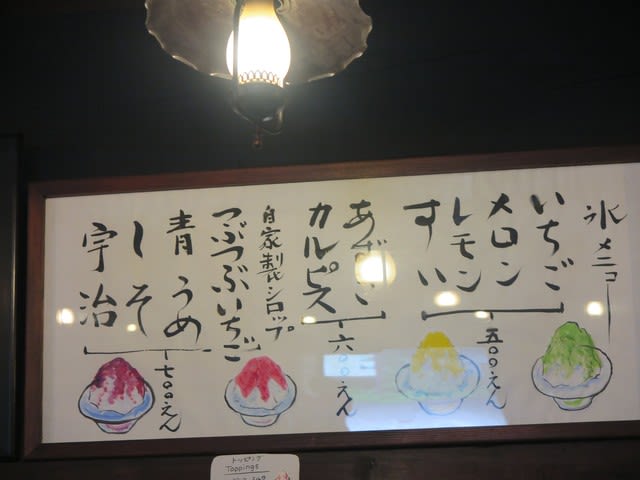 氷メニュー
いちご
メロン
レモン
すい
五〇〇えん
あずきミルク
カルピス
六〇〇えん
自家製シロップ
つぶつぶいちご
青うめ
しそ
宇治
七〇〇えん
トッピング
Toppings